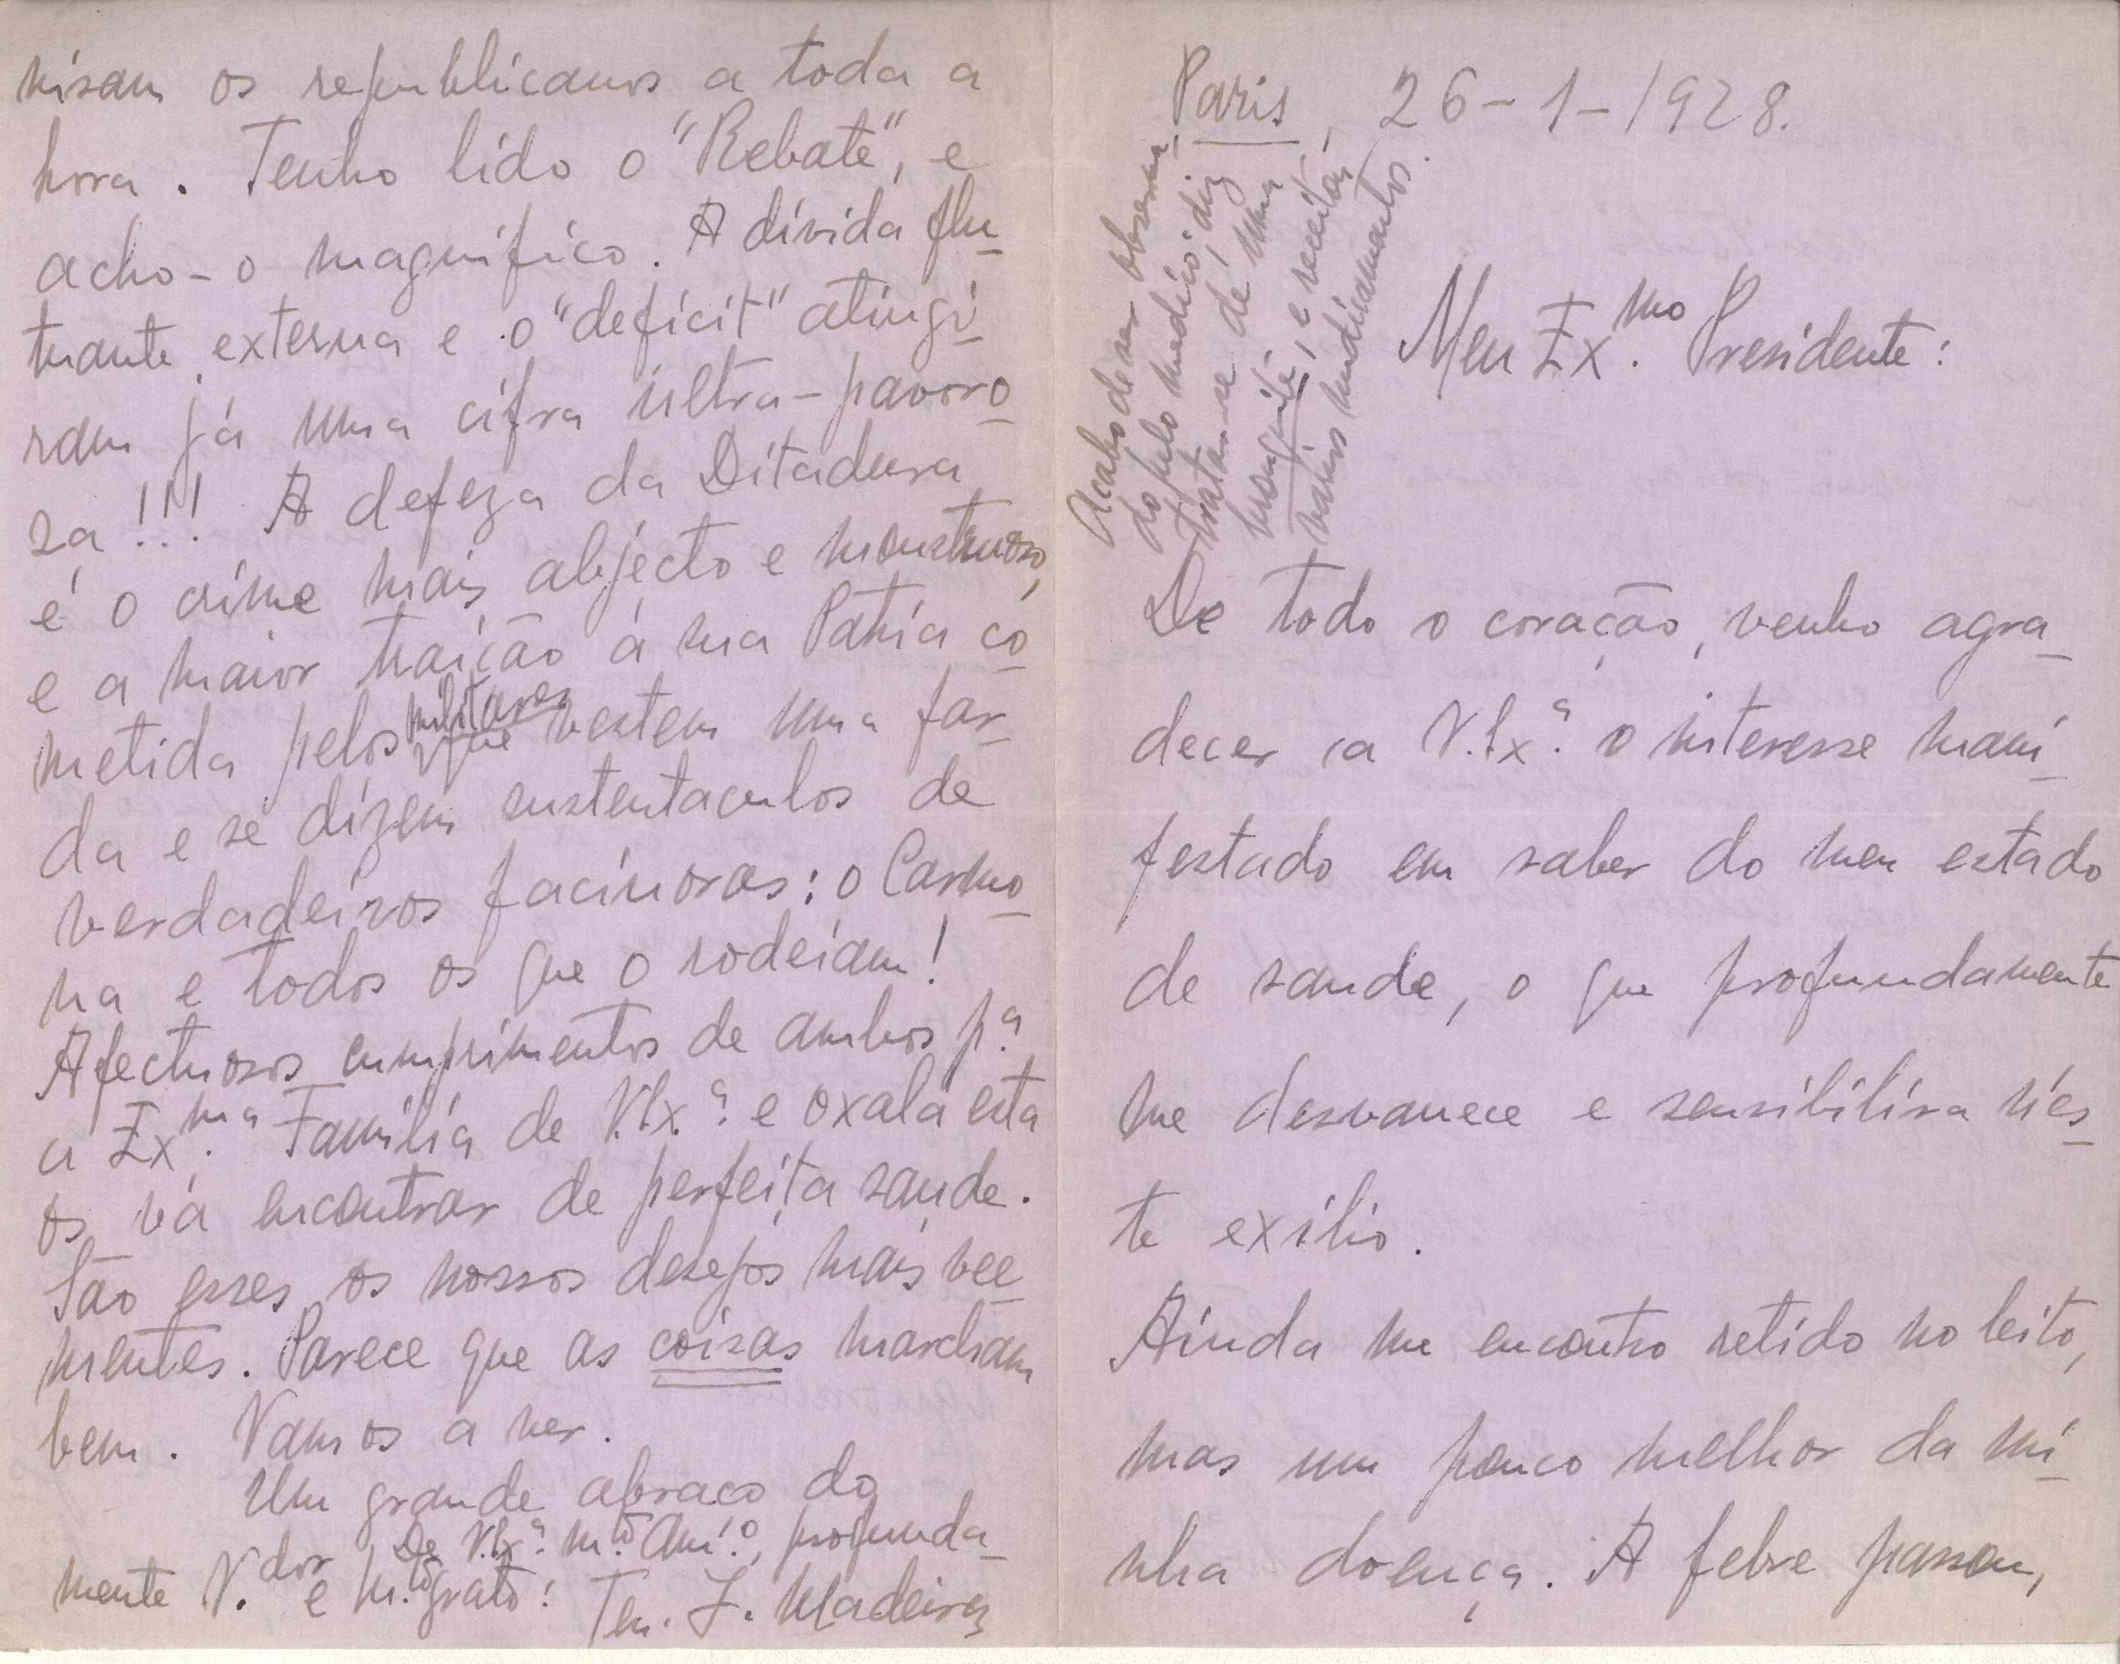 Paris, 26-1-1928.
Acabo de ser observa-
do pelo medico; diz
tratar-se de uma
bronquite, e receitou
varios medicamentos.
Meu Ex.mo Presidente:
De todo o coração, venho agra-
decer a V.Ex.ª o interesse mani-
festado em saber do meu estado
de saude, o que profundamente
me desvanece e sensibilisa n'es-
te exilio.
Ainda me encontro retido no leito,
mas um pouco melhor da mi-
nha doença. A febre passou,
nisam os republicanos a toda a
hora. Tenho lido o "Rebate", e
acho-o magnifico. A divida flu-
tuante externa e o "deficit" atingi-
ram já uma cifra ultra-pavoro-
sa!!! A defeza da Ditadura
é o crime mais abjecto e monstruoso,
e a maior traição á sua Patria co-
metida pelos militares que vestem uma far-
da e se dizem sustentaculos de
verdadeiros facinoras: o Carmo-
na e todos os que o rodeiam!
Afectuosos cumprimentos de ambos p.ª
a Ex.ma Familia de V.Ex.ª e oxalá esta
os vá encontrar de perfeita saude.
São esses os nossos desejos mais vee-
mentes. Parece que as coisas marcham
bem. Vamos a ver.
Um grande abraço do
De V.Ex.ª m.to Am.º, profunda-
mente V.dor e m.to grato:
Ten. J. Madeira